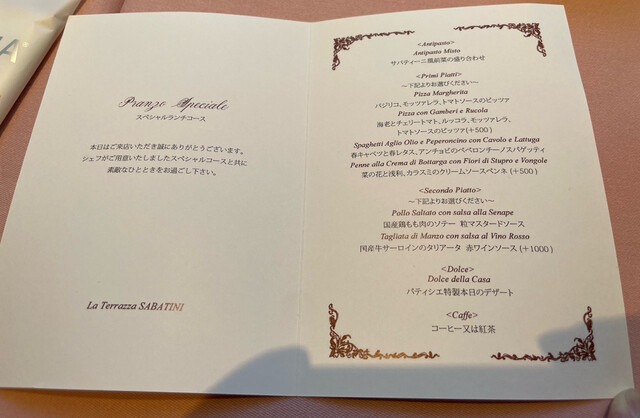 Pranzo Speciale
スペシャルランチコース
本日はご来店いただき誠にありがとうございます。
シェフがご用意いたしましたスペシャルコースと共に
素敵なひとときをお過ごし下さい。
La Terrazza SABATINI
<Antipasto>
Antipasto Misto
サバティーニ風前菜の盛り合わせ
<Primi Piatti>
～下記よりお選びください～
Pizza Margherita
バジリコ、モッツァレラ、トマトソースのピッツァ
Pizza con Gamberi e Rucola
海老とチェリートマト、ルッコラ、モッツァレラ、
トマトソースのピッツァ(+500)
Spaghetti Aglio Olio e Peperoncino con Cavolo e Lattuga
春キャベツと春レタス、アンチョビのペペロンチーノスパゲッティ
Penne alla Crema di Bottarga con Fiori di Stupro e Vongole
菜の花と浅利、カラスミのクリームソースペンネ (+500)
<Secondo Piatto>
～下記よりお選びください～
Pollo Saltato con salsa alla Senape
国産鶏もも肉のソテー 粒マスタードソース
Tagliata di Manzo con salsa al Vino Rosso
国産牛サーロインのタリアータ 赤ワインソース (+1000)
<Dolce>
Dolce della Casa
パティシエ特製本日のデザート
<Caffe>
コーヒー又は紅茶